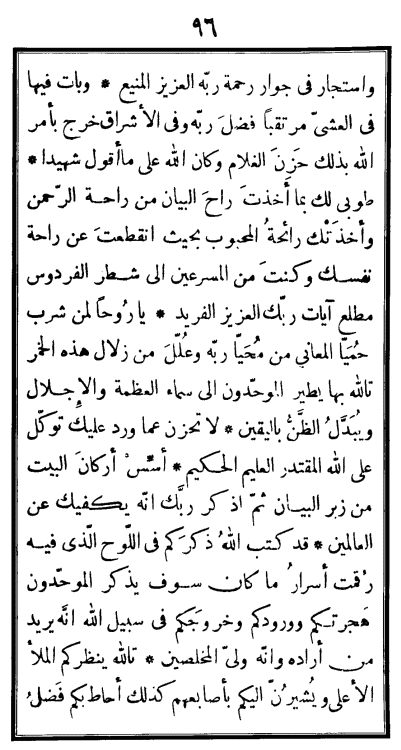 ٩٦
واستجار فى جوار رحمة ربّه العزيز المنيع * وبات فيها
فى العشىّ مرتقباً فضلَ ربّه وفى الأشراق خرج بأمر
الله بذلك حَزِنَ الغلام وكان الله على ما أقول شهيدا *
طوبى لك بما أخذتَ راحَ البيان من راحة الرّحمن
وأخذَتْك رائحةُ المحبوب بحيث انقطعتَ عن راحة
نفسك وكنتَ من المسرعين الى شطر الفردوس
مطلع آيات ربّك العزيز الفريد * يا رُوحاً لمن شرب
حُمَيَّا المعاني من مُحَيَّا ربّه وعُلّلَ من زلال هذه الخمر
تالله بها يطير الموحّدون الى سماء العظمة والإجلال
ويُبَدَّلُ الظَّنُّ باليقين * لا تحزن عما ورد عليك توكّل
على الله المقتدر العليم الحكيم * أسِّسْ أركانَ البيت
من زبر البيان ثمّ اذكر ربَّك انّه يكفيك عن
العالمين * قد كتب اللهُ ذكرَكم فى اللّوح الّذى فيه
رُقمت أسرارُ ما كان سوف يذكر الموحّدون
هَجرتكم وورودكم وخروجَكم فى سبيل الله انّه يريد
من أراده وانّه ولىّ المخلصين * تالله ينظركم الملأ
الأعلى ويُشيرُنّ اليكم بأصابعهم كذلك أحاط بكم فَضلُ